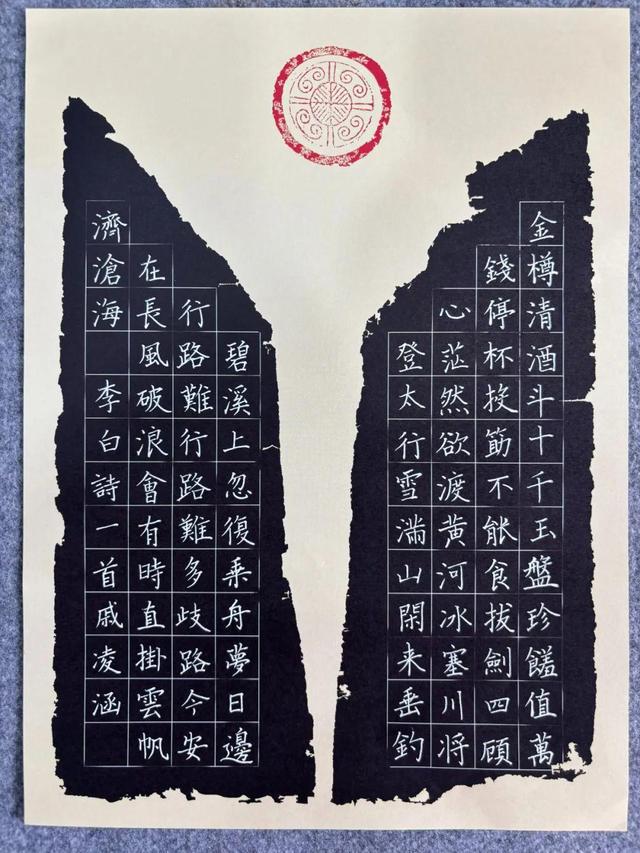 金樽清酒斗十千玉盤珍饈值萬
錢停杯投筯不能食拔劍四顧
心茫然欲渡黄河冰塞川将
登太行雪滿山閑来垂釣
碧溪上忽復乘舟夢日邊
行路難行路難多歧路今安
在長風破浪會有時直掛雲帆
濟滄海 李白詩一首戚凌涵